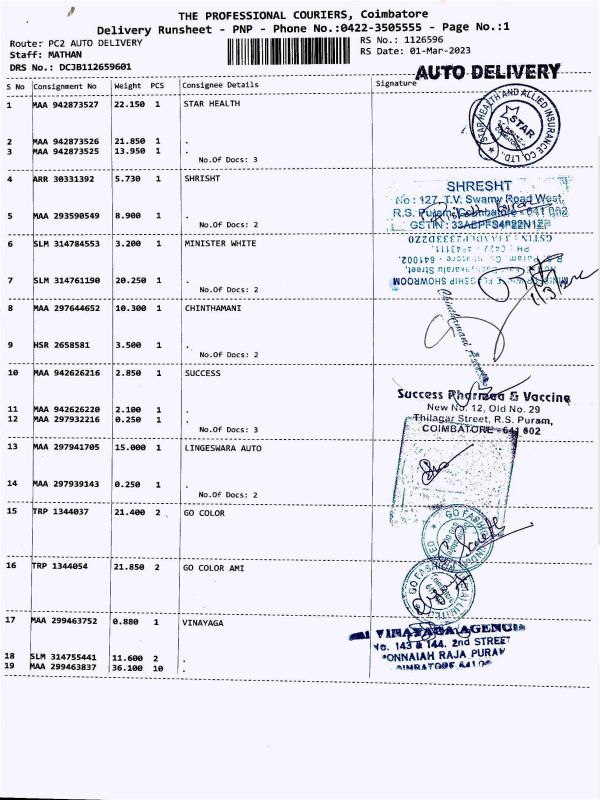 THE PROFESSIONAL COURIERS, Coimbatore
Delivery Runsheet - PNP - Phone No.:0422-3505555 - Page No.:1
Route: PC2 AUTO DELIVERY
RS No.: 1126596
Staff: MATHAN
RS Date: 01-Mar-2023
DRS No.: DCJB112659601
AUTO DELIVERY
S No Consignment No Weight PCS Consignee Details Signature
1 MAA 942873527 22.150 1 STAR HEALTH
STAR HEALTH AND ALLIED INSURANCE CO. LTD.
STAR
2 MAA 942873526 21.850 1 .
3 MAA 942873525 13.950 1 .
No.Of Docs: 3
4 ARR 30331392 5.730 1 SHRISHT
SHRESHT
No : 127, T.V. Swamy Road West,
R.S. Puram, Coimbatore - 641 002
5 MAA 293590549 8.900 1 .
No.Of Docs: 2
6 SLM 314784553 3.200 1 MINISTER WHITE
7 SLM 314761190 20.250 1 .
No.Of Docs: 2
8 MAA 297644652 10.300 1 CHINTHAMANI
9 HSR 2658581 3.500 1 .
No.Of Docs: 2
10 MAA 942626216 2.850 1 SUCCESS
Success Pharmaa & Vaccine
New No. 12, Old No. 29
Thilagar Street, R.S. Puram,
COIMBATORE - 641 002
11 MAA 942626220 2.100 1 .
12 MAA 297932216 0.250 1 .
No.Of Docs: 3
13 MAA 297941705 15.000 1 LINGESWARA AUTO
14 MAA 297939143 0.250 1 .
No.Of Docs: 2
15 TRP 1344037 21.400 2 GO COLOR
16 TRP 1344054 21.850 2 GO COLOR AMI
17 MAA 299463752 0.880 1 VINAYAGA
VINAYAGA AGENCI
No. 143 & 144. 2nd STREET
PONNAIAH RAJA PURAM
18 SLM 314755441 11.600 2 .
19 MAA 299463837 36.100 10 .